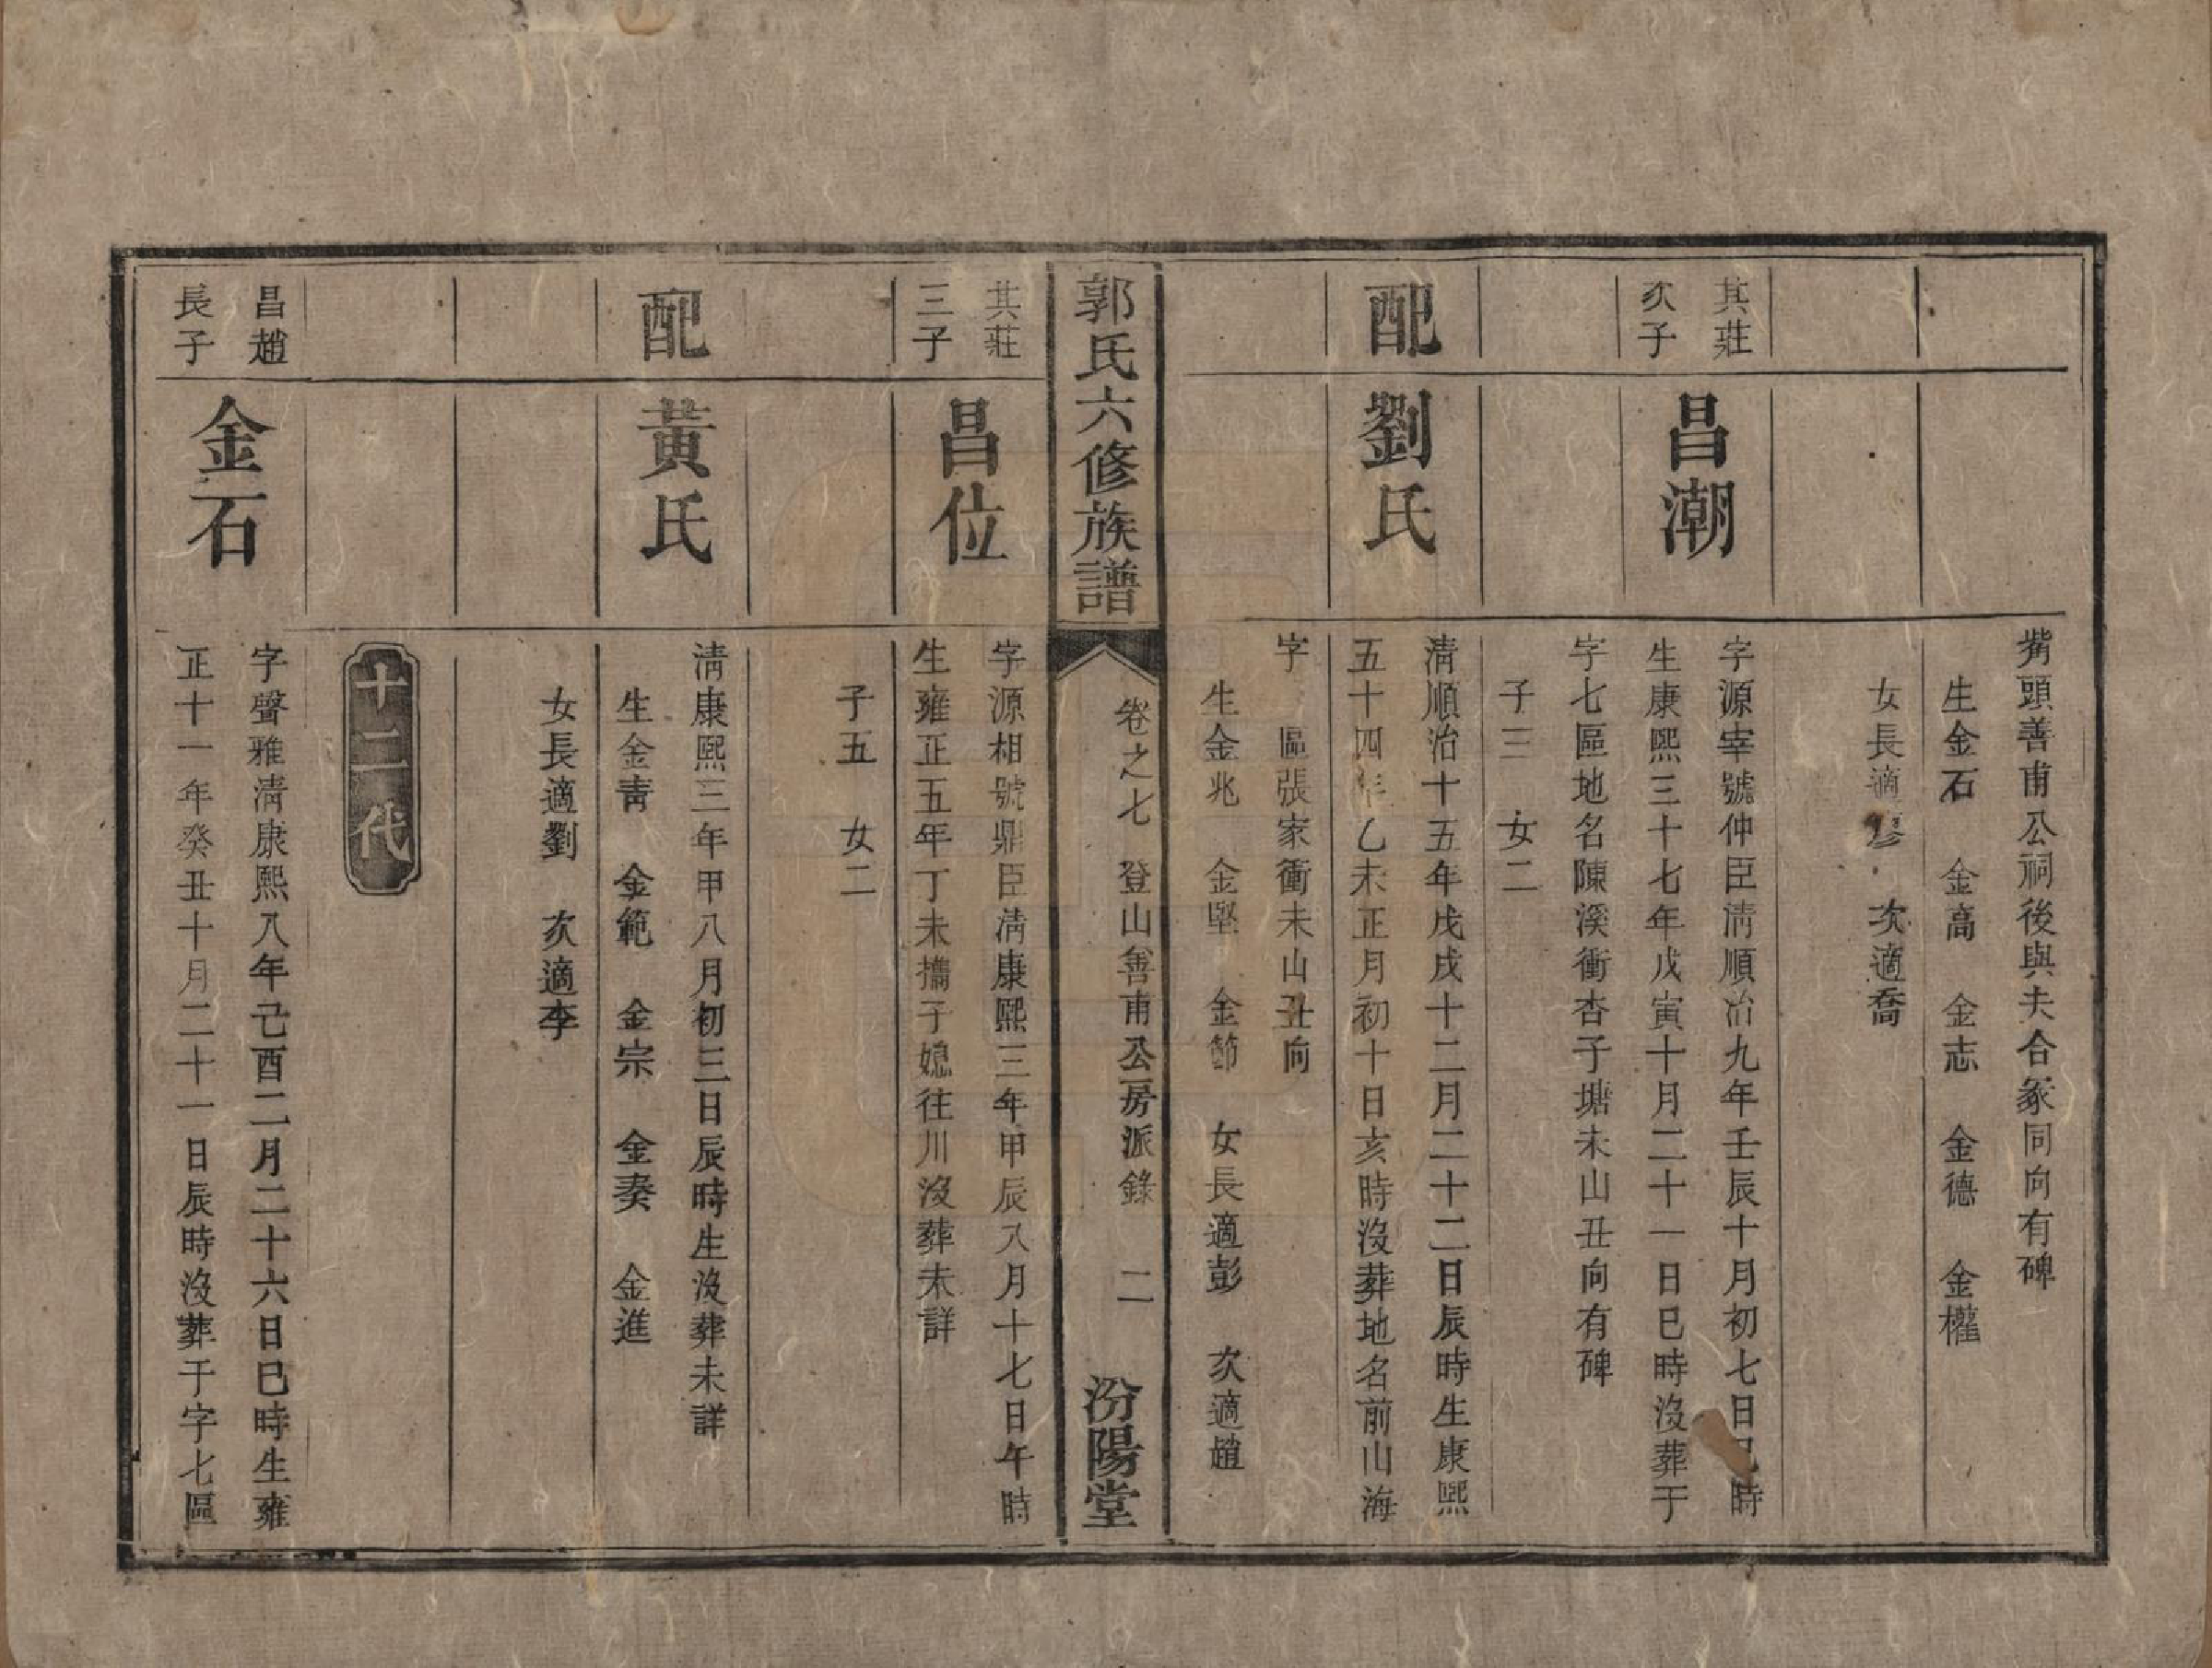 觜頭善甫公祠後與夫合冢同向有碑
生金石　金高　金志　金德　金權
女長適彭　次適喬
其莊
次子
昌潮
字源宰號仲臣清順治九年壬辰十月初七日巳時
生康熙三十七年戊寅十月二十一日巳時沒葬于
字七區地名陳溪衝杏子塘未山丑向有碑
子三　女二
配
劉氏
清順治十五年戊戌十二月二十二日辰時生康熙
五十四年乙未正月初十日亥時沒葬地名前山海
字　區張家衝未山丑向
生金兆　金堅　金節　女長適彭　次適趙
郭氏六修族譜
卷之七　登山善甫公房派錄　二
汾陽堂
其莊
三子
昌位
字源相號鼎臣清康熙三年甲辰八月十七日午時
生雍正五年丁未攜子媳往川沒葬未詳
子五　女二
配
黃氏
清康熙三年甲八月初三日辰時生沒葬未詳
生金青　金範　金宗　金奏　金進
女長適劉　次適李
十二代
昌趙
長子
金石
字聲雅清康熙八年己酉二月二十六日巳時生雍
正十一年癸丑十月二十一日辰時沒葬于字七區